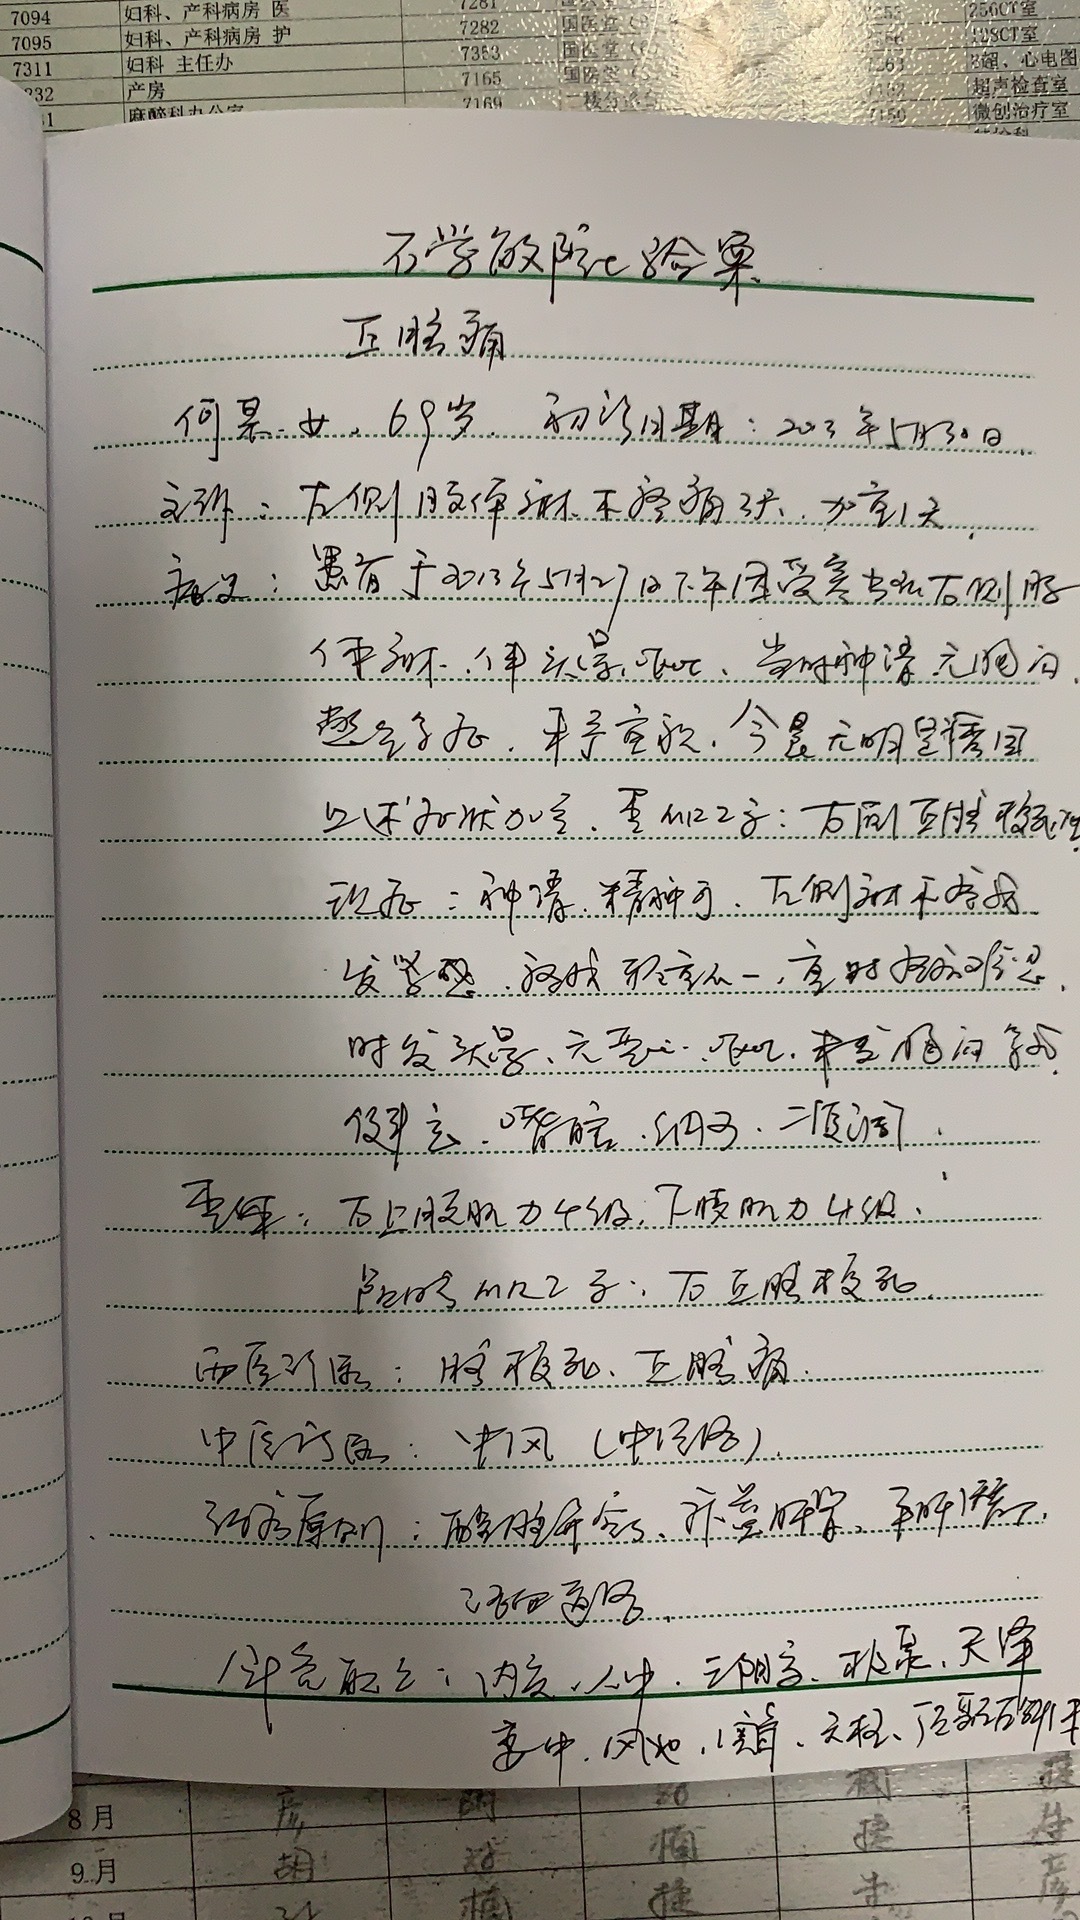 7094 妇科、产科病房 医 7281
7095 妇科、产科病房 护 7282 国医堂 128CT室
7311 妇科 主任办 7353 国医堂 B超、心电图
232 产房 7165 国医堂 超声检查室
麻醉科办公室 7169 7150 微创治疗室
石学敏院士验案
丘脑痛
何某.女、69岁. 初诊日期：2013年5月30日.
主诉：左侧肢体麻木疼痛3天、加重1天.
病史：患者于2013年5月27日下午因受寒出现左侧肢
体麻木.伴头晕.呕吐、当时神清.无胸闷.
憋气等症.未予重视.今晨无明显诱因
上述症状加重.查MRI示：右侧丘脑梗死.
现症：神清.精神可、左侧麻木疼痛.
发紧感.疼痛轻重不一.重时疼痛难忍.
时发头晕、无恶心.呕吐.未至胸闷等症.
纳可.二便调.
查体：左上肢肌力4级.下肢肌力4级.
颅脑MRI示：右丘脑梗死.
西医诊断：脑梗死、丘脑痛.
中医诊断：中风（中经络）.
治疗原则：醒脑开窍、滋益肝肾、平肝潜阳.
活血通络.
针灸配穴：内关.人中.三阴交、极泉、尺泽
委中.风池.完骨.天柱、
8月
9月 胡
楠 捷